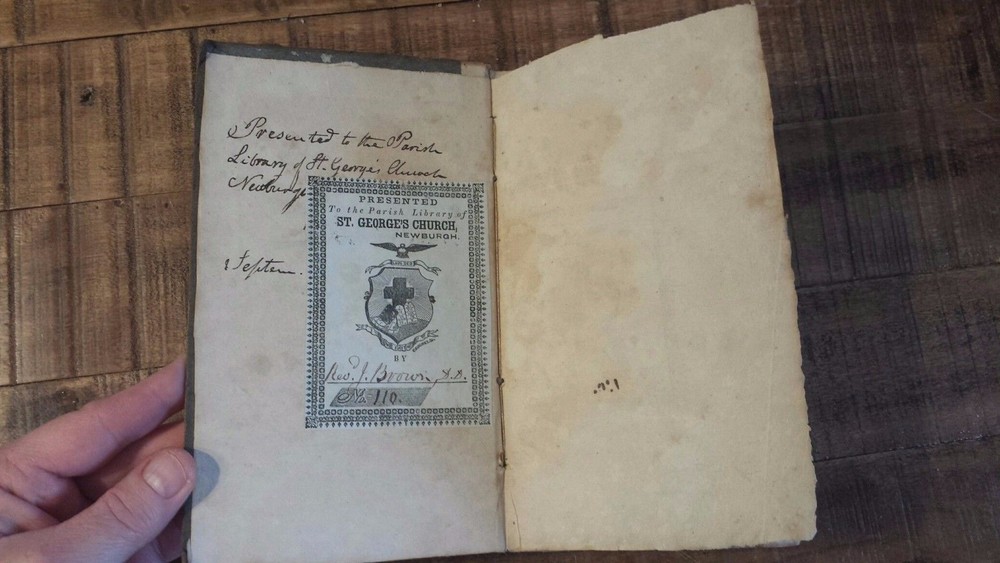 Presented to the Parish
Library of St. George's Church
PRESENTED
To the Parish Library of
ST. GEORGE'S CHURCH,
NEWBURGH.
BY
Rev. J. Brown, D.D.
No 110.
Septem.